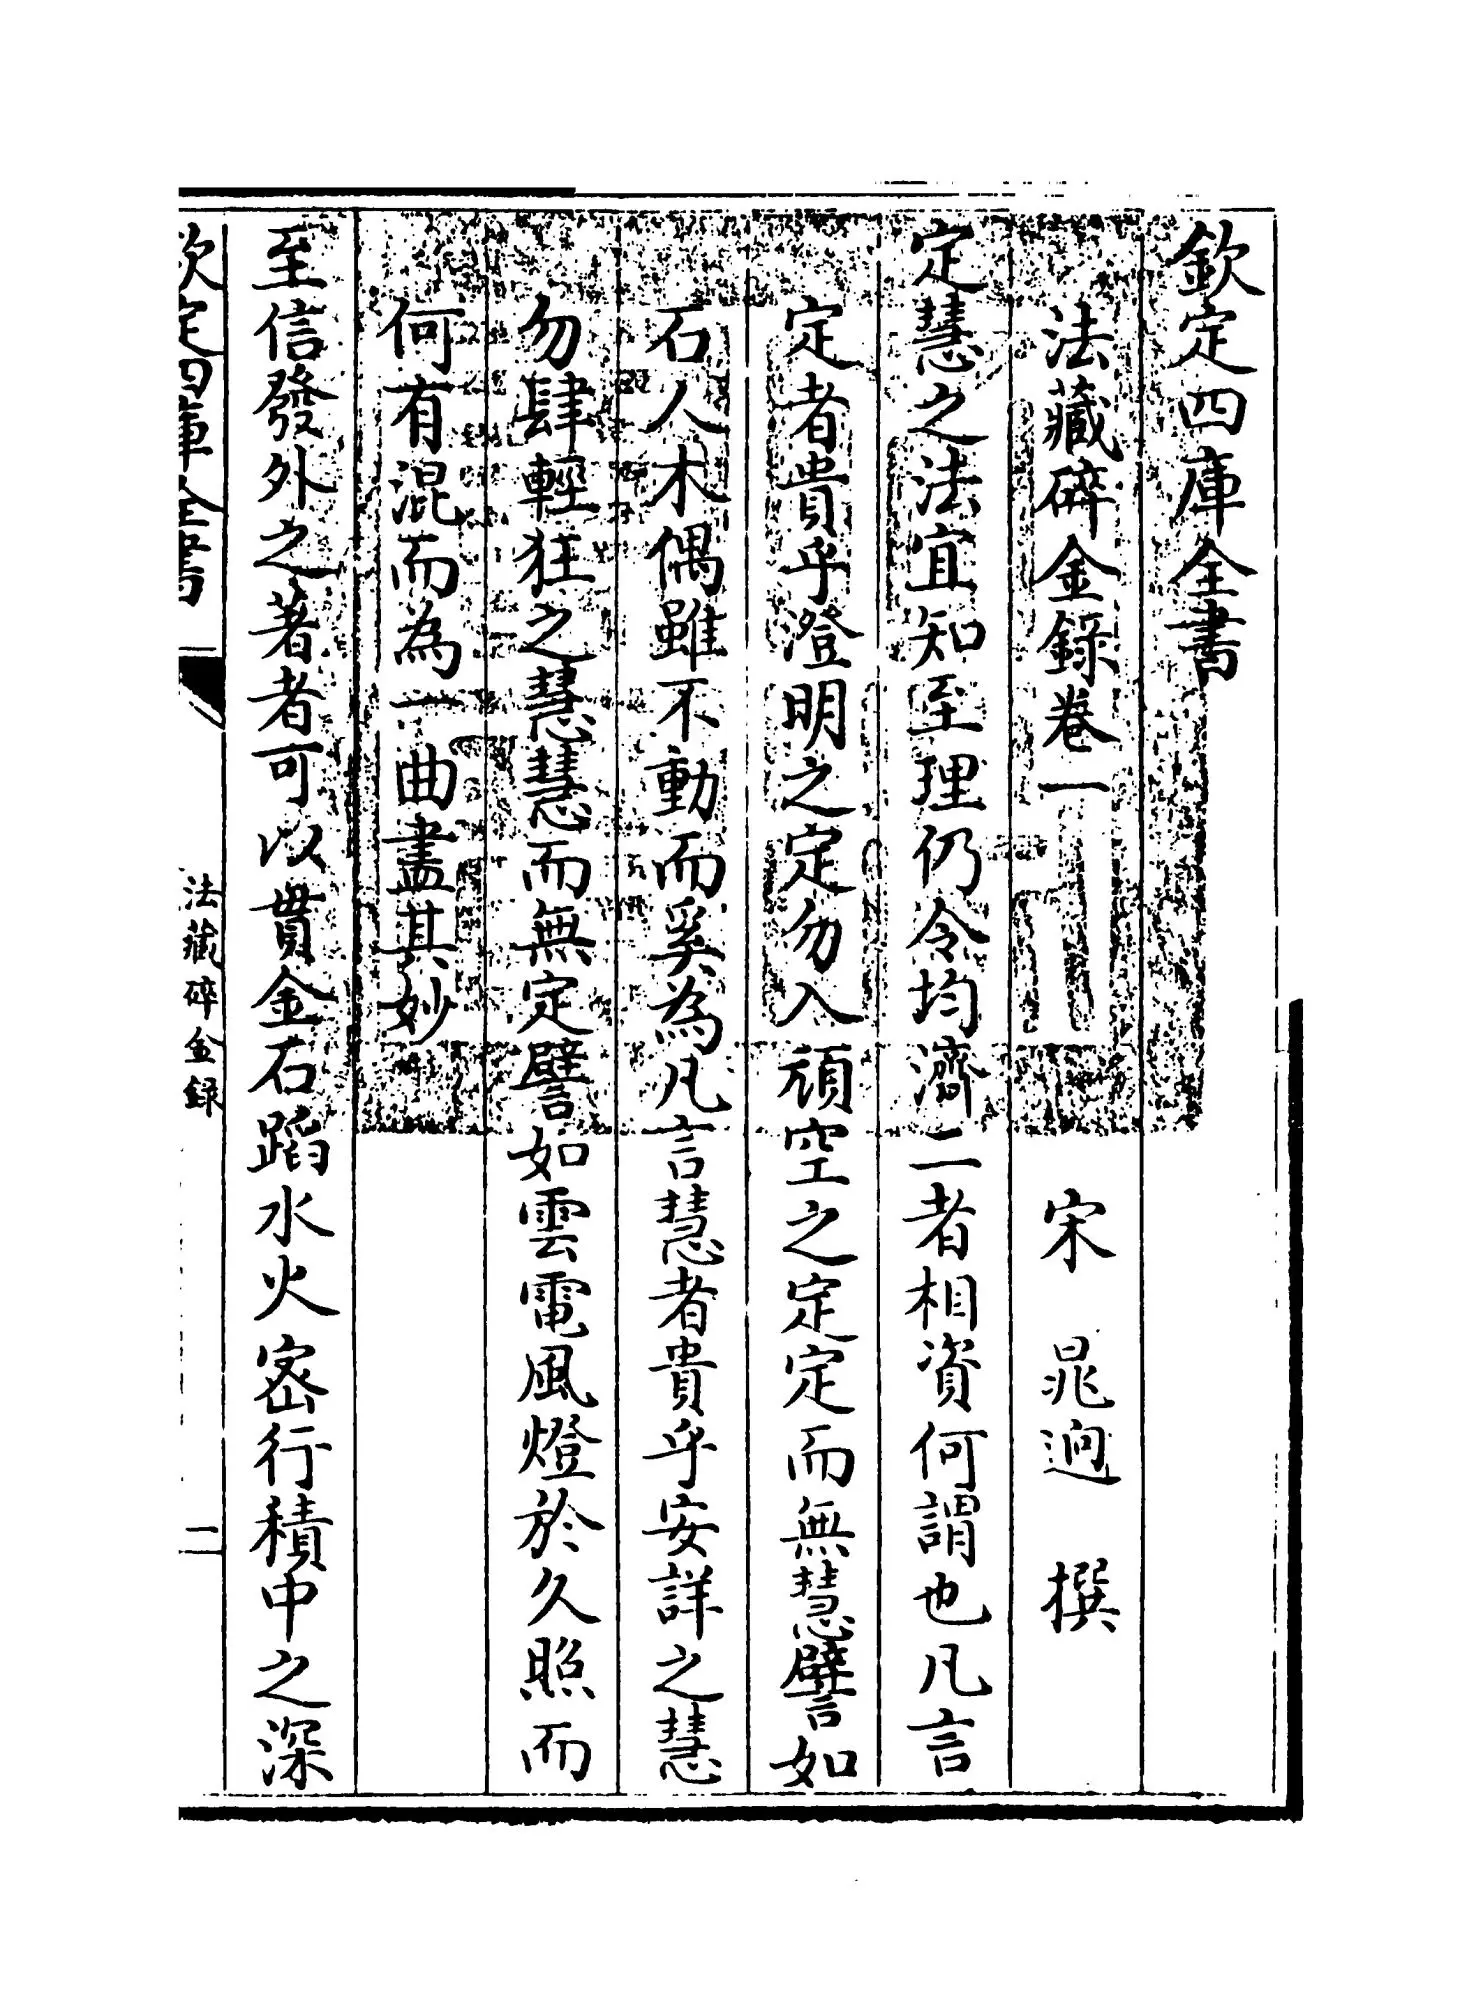 欽定四庫全書
法藏碎金錄卷一
宋 晁迥 撰
定慧之法宜知至理仍令均濟二者相資何謂也凡言
定者貴乎澄明之定勿入頑空之定定而無慧譬如
石人木偶雖不動而奚為凡言慧者貴乎安詳之慧
勿肆輕狂之慧慧而無定譬如雲電風燈於久照而
何有混而為一曲盡其妙
至信發外之著者可以貫金石蹈水火密行積中之深
欽定四庫全書
法藏碎金錄
一